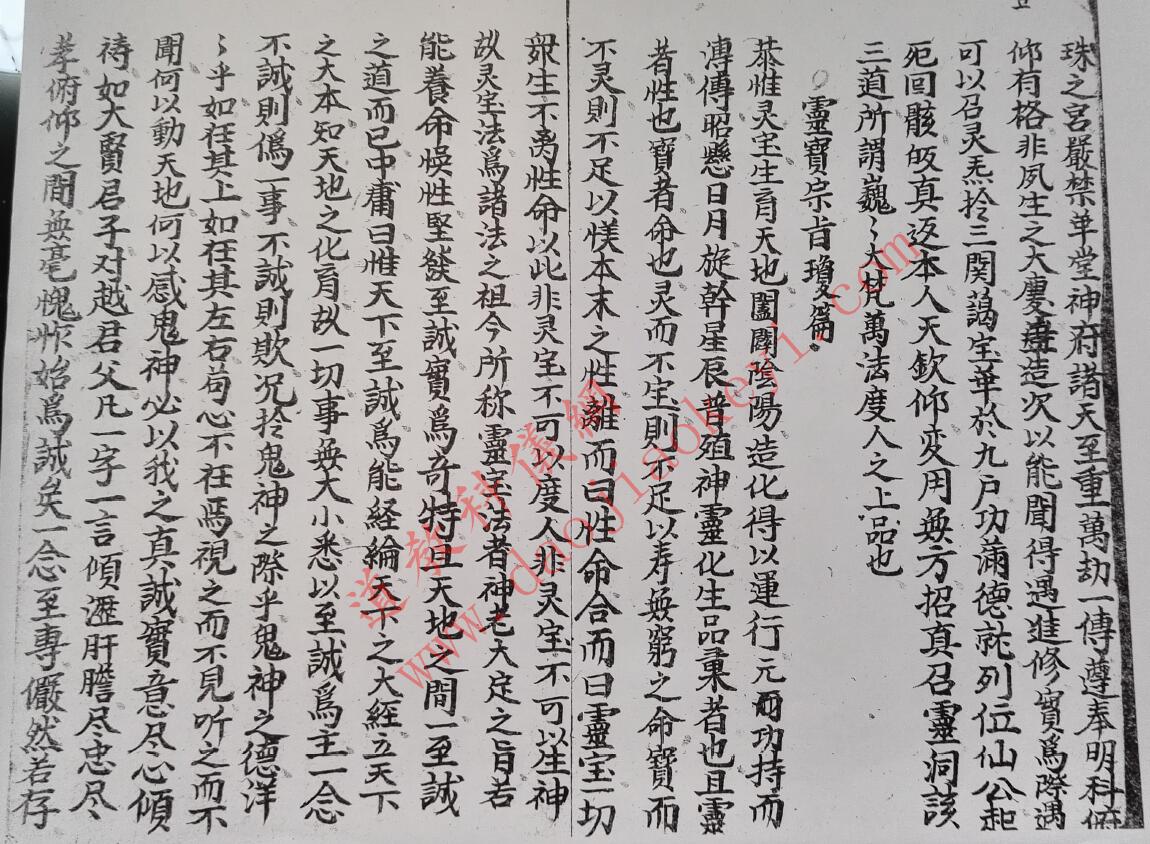 珠之宮嚴禁華堂神府諸天至重萬劫一傳遵奉明科俯
仰有格非夙生之大慶遭造次以能聞得遇進修實爲際遇
可以召灵炁於三関藹宝華於九户功滿德就列位仙公起
死回骸皈真返本人天欽仰变用無方招真召靈洞該
三道所謂巍〻大梵萬法度人之上品也
○靈寶宗旨瓊篇。
恭惟灵宝生育天地闔闢陰陽造化得以運行元功持而
溥傳昭懸日月旋斡星辰普殖神靈化生品彙者也且靈
者性也寶者命也灵而不宝則不足以寿無窮之命寶而
不灵則不足以慔本末之性離而曰性命合而曰靈宝一切
衆生不离性命以此非灵宝不可以度人非灵宝不可以生神
故灵宝法爲諸法之祖今所称靈宝法者神老大定之旨若
能養命悞性坚發至誠實爲奇特且天地之間一至誠
之道而已中庸曰惟天下至誠爲能経綸天下之大経立天下
之大本知天地之化育故一切事無大小悉以至誠爲主一念
不誠則僞一事不誠則欺况於鬼神之際乎鬼神之德洋
〻乎如在其上如在其左右苟心不在焉視之而不見听之而不
聞何以動天地何以感鬼神必以我之真誠實意尽心傾
祷如大賢君子对越君父凡一字一言傾瀝肝膽尽忠尽
孝俯仰之間無毫愧怍始爲誠矣一念至專儼然若存
道教科儀網
www.daojiaokeyi.com